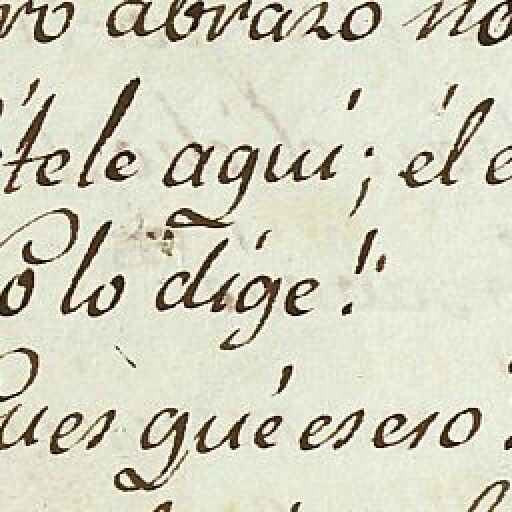 ro abrazo no
étele aquí; él e
o lo díge!!
ues qué es eso